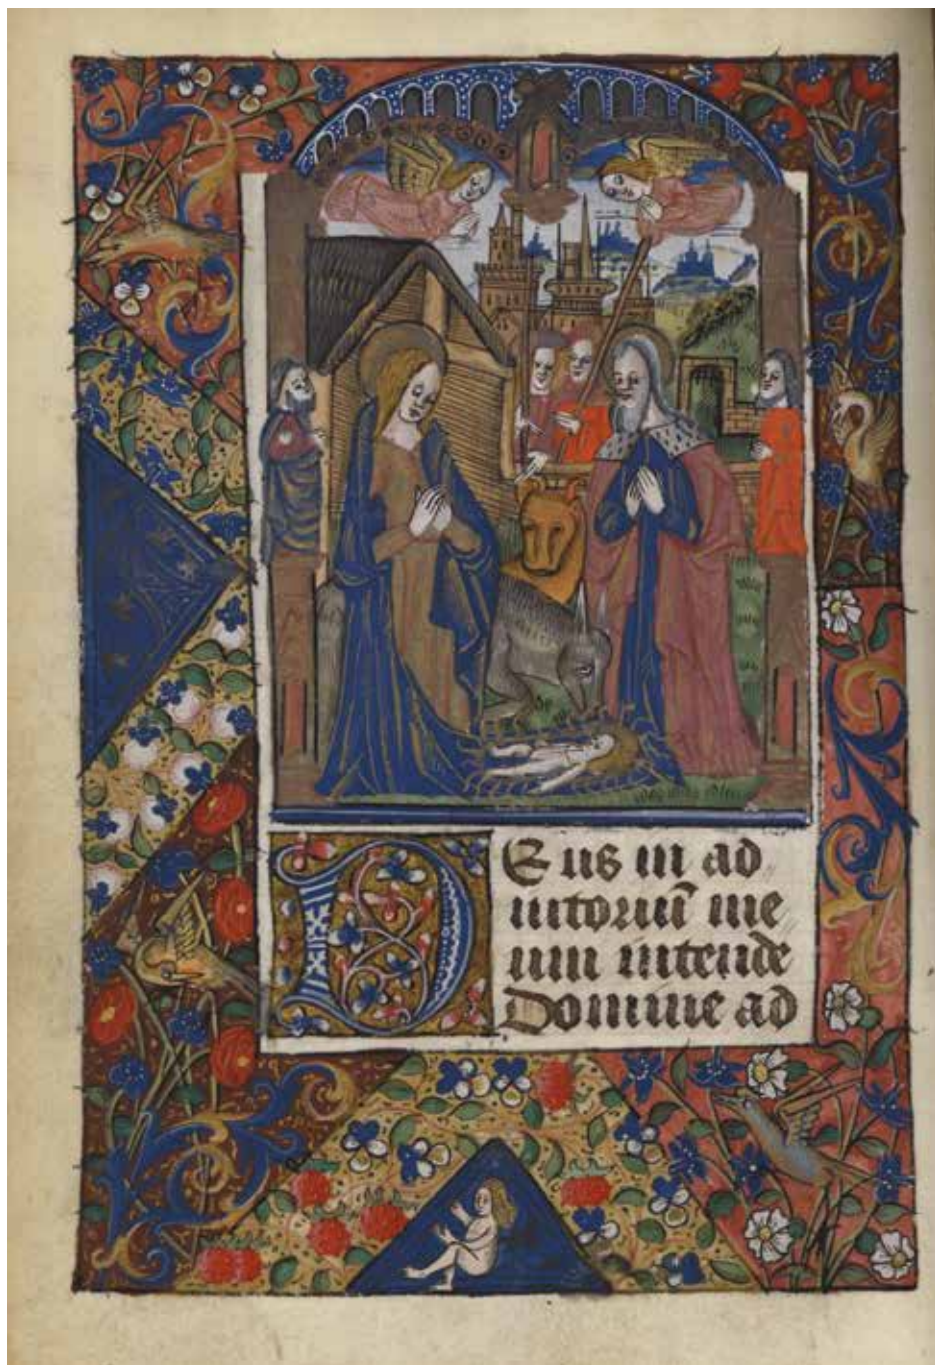 Deus in ad
iutoriũ me
um intende
Domine ad